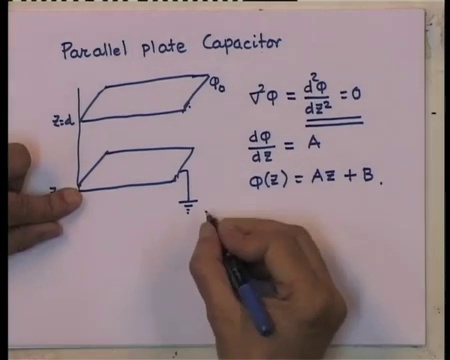 Parallel plate Capacitor
φ₀
∇²φ = d²φ/dz² = 0
z=d
dφ/dz = A
φ(z) = Az + B.
z